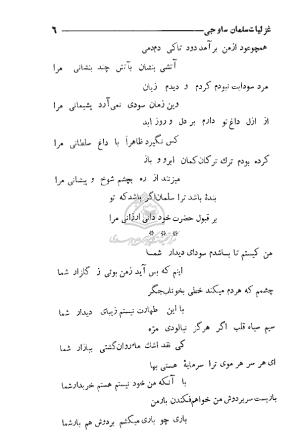 غزلیات سلمان ساوجی ۶
همچو عود از من برآمد دود تا کی دم دمی
آتشی بنشان بآتش چند بنشانی مرا
مرد سودایت نبودم کردم و دیدم زیان
وین زمان سودی نمی‌آرد پشیمانی مرا
از ازل داغ تو دارم بر دل و روز ابد
کس نگیرد ظاهراً با داغ سلطانی مرا
کرده بودم ترك ترکان کمان ابرو و باز
میزنند از ره بچشم شوخ و پیشانی مرا
بندهٔ باشد ترا سلمان اگر باشد که تو
بر قبول حضرت خود دانی ارزانی مرا
* * *
من کیستم تا باشدم سودای دیدار شما
اینم که بس آید ز من بوئی ز گلزار شما
چشمم که هر دم میکند خطی بخوناب جگر
با این طهارت نیستم زیبای دیدار شما
سیم سیاه قلب اگر هرگز نیالودی مژه
کی نقد اشك ما روان گشتی ببازار شما
ای هر سر هر موی ترا سرمایهٔ هستی بها
با آنکه من خود نیستم هستم خریدار شما
باز یست سربردوش من خواهم فکندن باز من
باری چو باری میکشم بر دوش هم بار شما